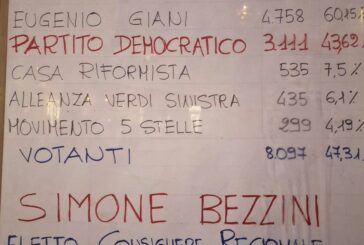 EUGENIO GIANI 4.758 60,15
PARTITO DEMOCRATICO 3.111 43,62
CASA RIFORMISTA 535 7,5%
ALLEANZA VERDI SINISTRA 435 6,1%
MOVIMENTO 5 STELLE 299 4,19%
VOTANTI 8.097 47,31
SIMONE BEZZINI
ELETTO CONSIGLIERE REGIONALE